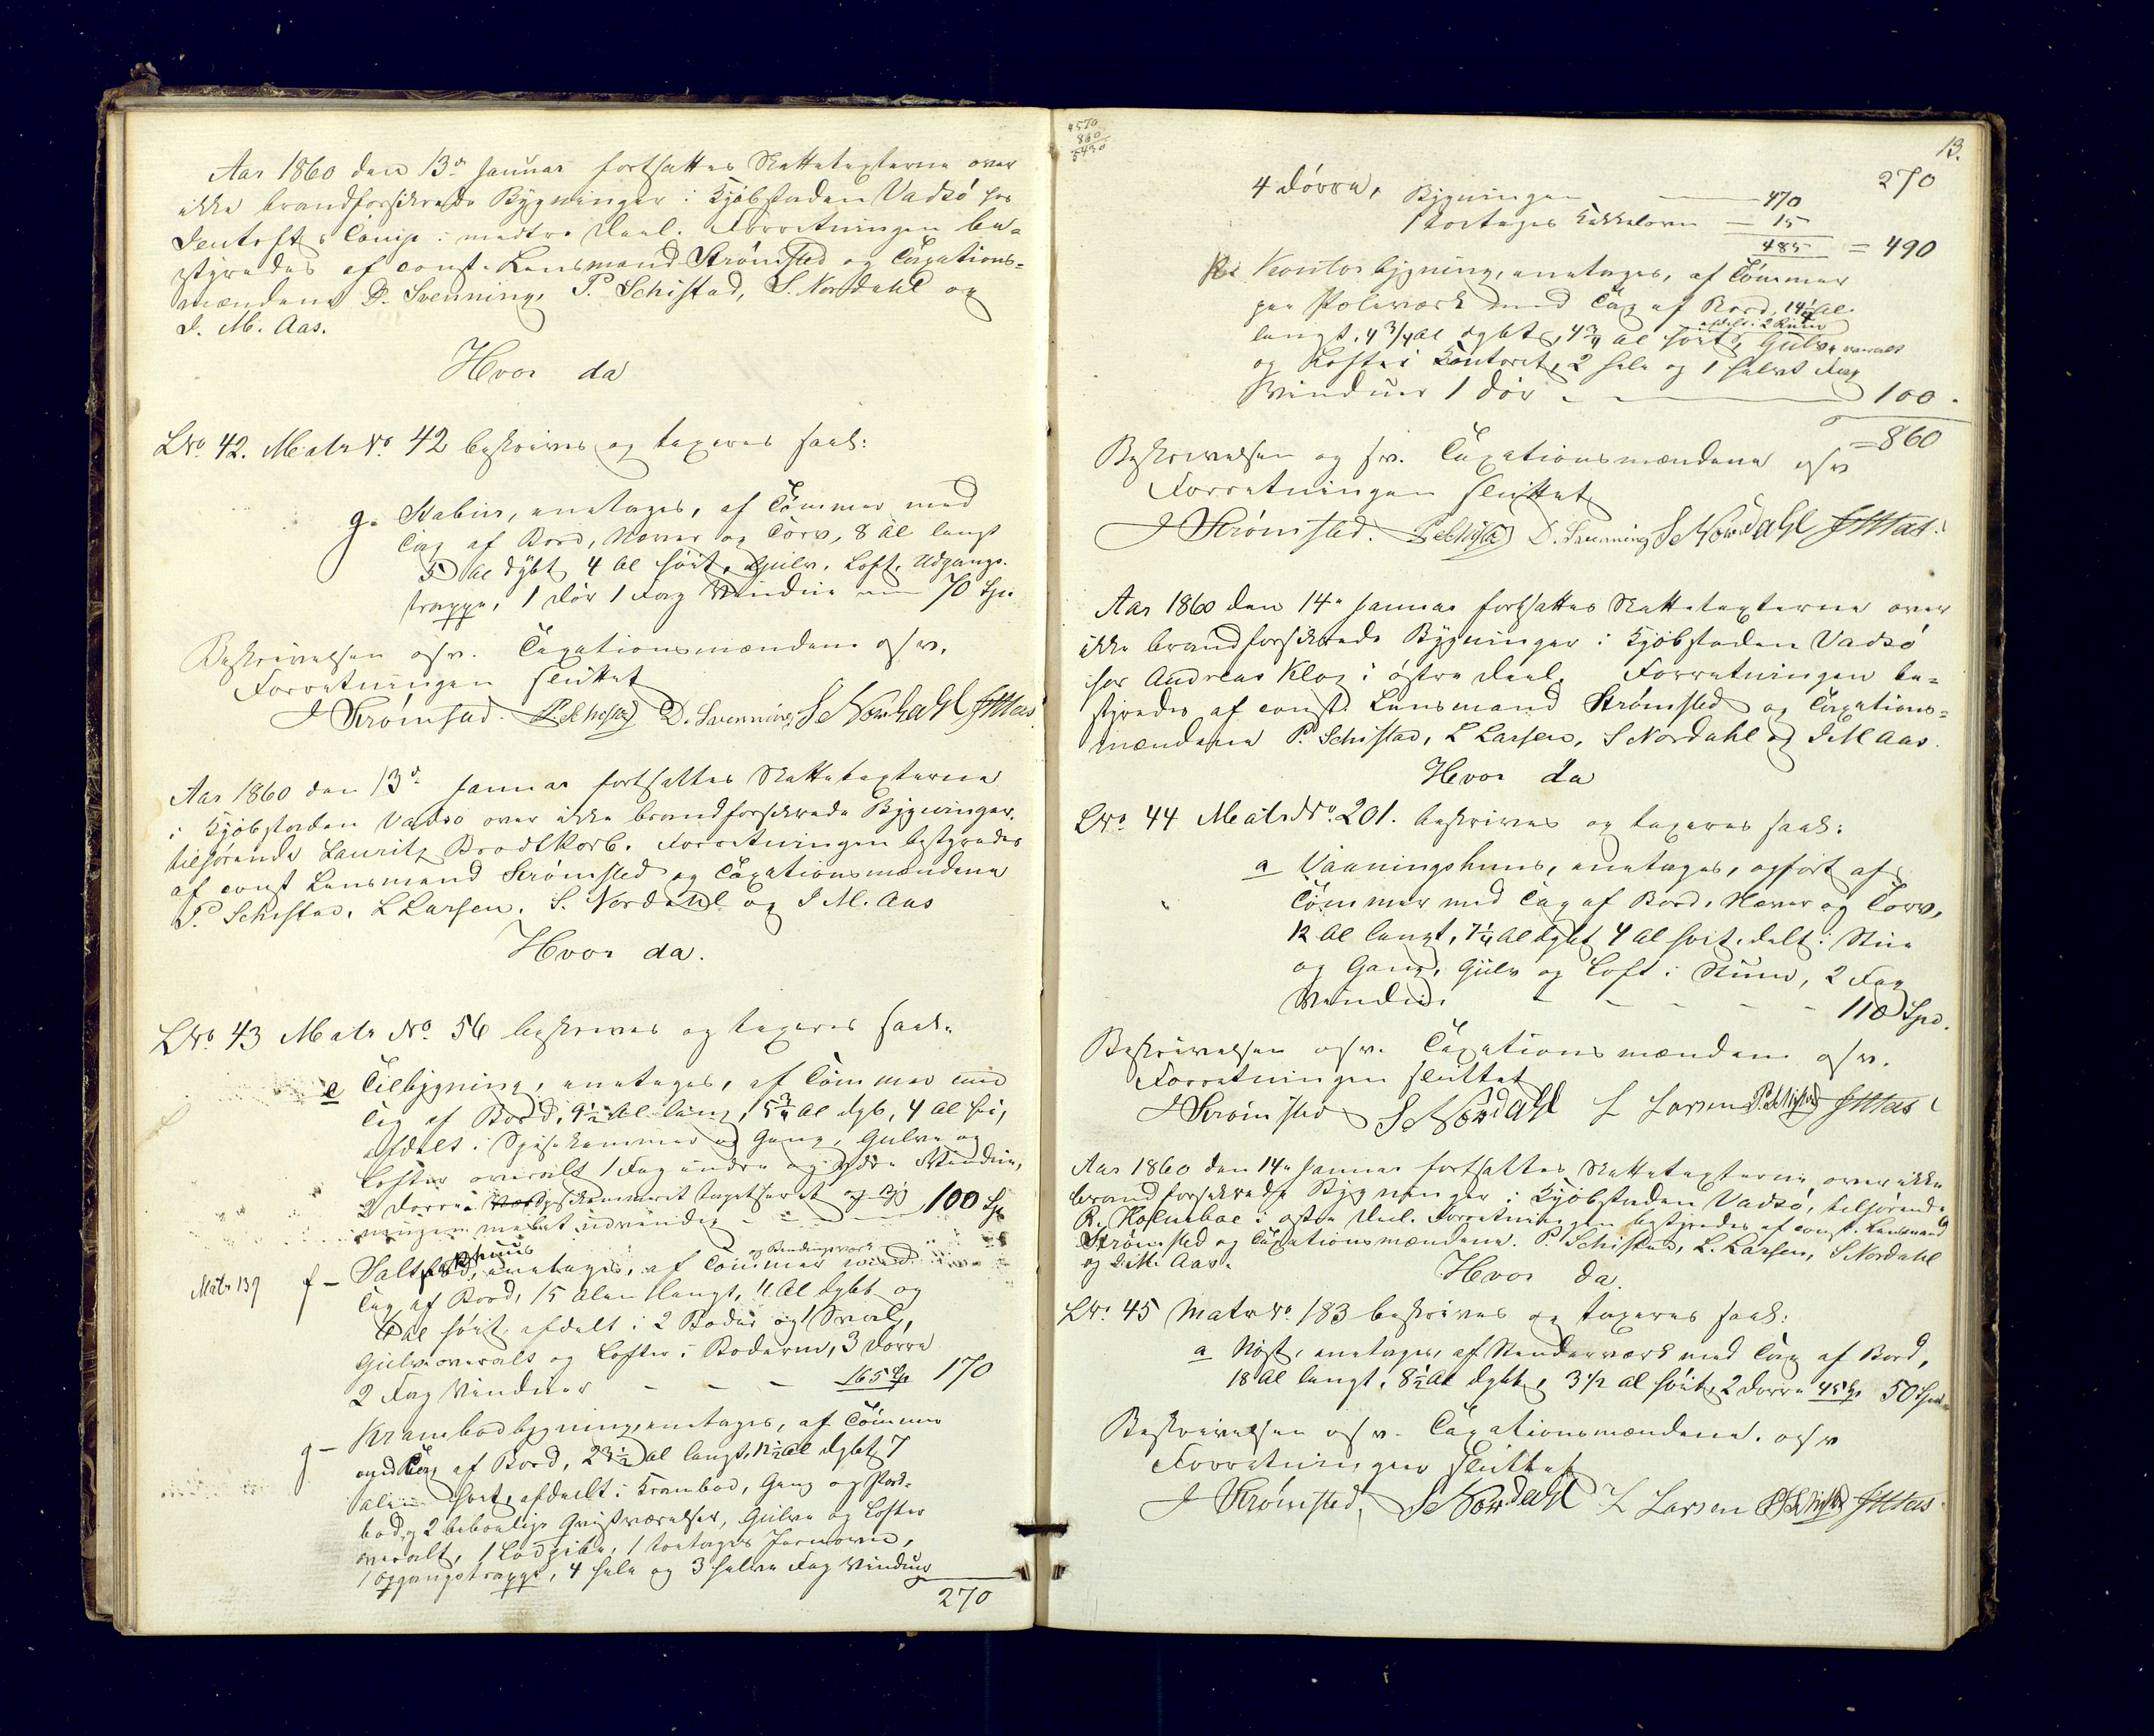 Aar 1860 den 13de Januar fortsattes Skattetaxterne over
ikke brandforsikrede Bygninger i Kjøbstaden Vadsø hos
Dentofts Comp: i medtre Deel. Forretningen be-
styredes af const. Lensmand Strømsted og Taxations-
mændene D. Svenning, P. Schistad, S. Nordahl og
I. M. Aas.
Hvor da
LNo. 42. Matr No. 42 beskrives og taxeres saal:
g. Stabur, eenetages, af Tømmer med
Tag af Bord, Næver og Torv, 8 Al langt
5 Al dybt 4 Al høit, Gulv, Loft, Udgangs-
trappe, 1 Dør 1 Fag Vindue 70 Spd
Beskrivelsen osv. Taxationsmændene osv.
Forretningen sluttet
J Strømsted. P. Schistad D. Svenning S Nordahl JMAas
Aar 1860 den 13de Januar fortsattes Skattetaxterne
i Kjøbstaden Vadsø over ikke brandforsikrede Bygninger,
tilhørende Lauritz Brodtkorb. Forretningen bestyredes
af const Lensmand Strømsted og Taxationsmændene
P. Schistad, L Larsen, S. Nordahl og I M. Aas
Hvor da.
LNo. 43 Matr No. 56 beskrives og taxeres saal:
e Tilbygning, eenetages, af Tømmer med
Tag af Bord, 9½ Al lang, 5¾ Al dyb, 4 Al høi,
afdelt i Spisekammer og Gang, Gulve og
Lofter overalt 1 Fag indre og ydre Vindue,
2 Dørre. Værelsekammerit tapetseret og Byg
ningen malet udvendig - - 100 Spd
Matr 139 f - Saltbod, huus eenetages, af Tømmer og Bindingsværk med
Tag af Bord, 15 Alen langt, 11 Al dybt og
6 Al høit, afdelt i 2 Boder og 1 Sval,
Gulv overalt og Lofter i Boderne, 3 Dørre
2 Fag Vinduer - - - 165 Sp 170
g - Krambodbygning, eenetages, af Tømmer
med Tag af Bord, 23½ Al langt, 12½ Al dybt 7
Alen høit, afdeelt i Krambod, Gang og Pak-
bod, og 2 beboelige Qvistværelser, Gulve og Lofter
overalt, 1 Ladpibe, 1 toetages Jernovn,
1 Opgangstrappe, 4 hele og 3 halve Fag Vinduer
270
4570
860
5430
13.
270
4 Dørre, Bygningen 470
1 toetages Kakkelovn = 15
485 = 490
h: Kontorbygning, eenetages, af Tømmer
paa Poleværk med Tag af Bord, 14¼ Al.
langt, 4 3/4 Al dybt, 4¾ Al høit, afdelt i 2 Rum Gulve overalt
og Lofter i Kontoret, 2 hele og 1 halvt Fag
Vinduer 1 Dør - - 100.
= 860
Beskrivelsen og sv. Taxationsmændene osv
Forretningen sluttet
J Strømsted. P Schistad D. Svenning S Nordahl JMAas
Aar 1860 den 14de Januar fortsattes Skattetaxterne over
ikke brandforsikrede Bygninger i Kjøbstaden Vadsø
hos Andreas Klog i østre Deel. Forretningen be-
styredes af const. Lensmand Strømsted og Taxations-
mændene P. Schistad, L Larsen, S Nordahl og I M Aas.
Hvor da
LNo. 44 Matr No. 201. beskrives og taxeres saal:
a Vaaningshuus, eenetages, opført af
Tømmer med Tag af Bord, Næver og Torv,
12 Al langt, 7¼ Al dybt 4 Al høit, delt i Stue
og Gang, Gulv og Loft i Stuen, 2 Fag
Vindue. - - - - - 110 Spd.
Beskrivelsen osv. Taxationsmændene osv.
Forretningen sluttet
J Strømsted S Nordahl L Larsen P. Schistad JMAas
Aar 1860 den 14de Januar fortsattes Skattetaxterne over ikke
brandforsikrede Bygninger i Kjøbstaden Vadsø, tilhørende
R. Holmboe i østre Deel. Forretningen bestyredes af const. Lensmand
Strømsted og Taxationsmændene. P. Schistad, L. Larsen, S Nordahl
og I. M. Aas.
Hvor da.
LNo. 45 Matr No. 183 beskrives og taxeres saal:
a Nøst, eenetages, af Stenderværk med Tag af Bord,
18 Al langt, 8½ Al dybt, 3 1/2 Al høit, 2 Dørre 45 Sp 50 Spd
Beskrivelsen osv. Taxationsmændene. osv
Forretningen sluttet
J Strømsted, S Nordahl L Larsen P Schistad JMAas